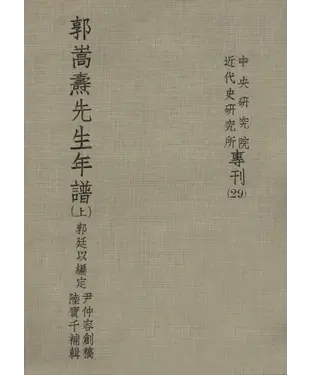 中央研究院
近代史研究所
專刊(29)
郭嵩燾先生年譜(上)
郭廷以編定
尹仲容創稿
陸寶千補輯